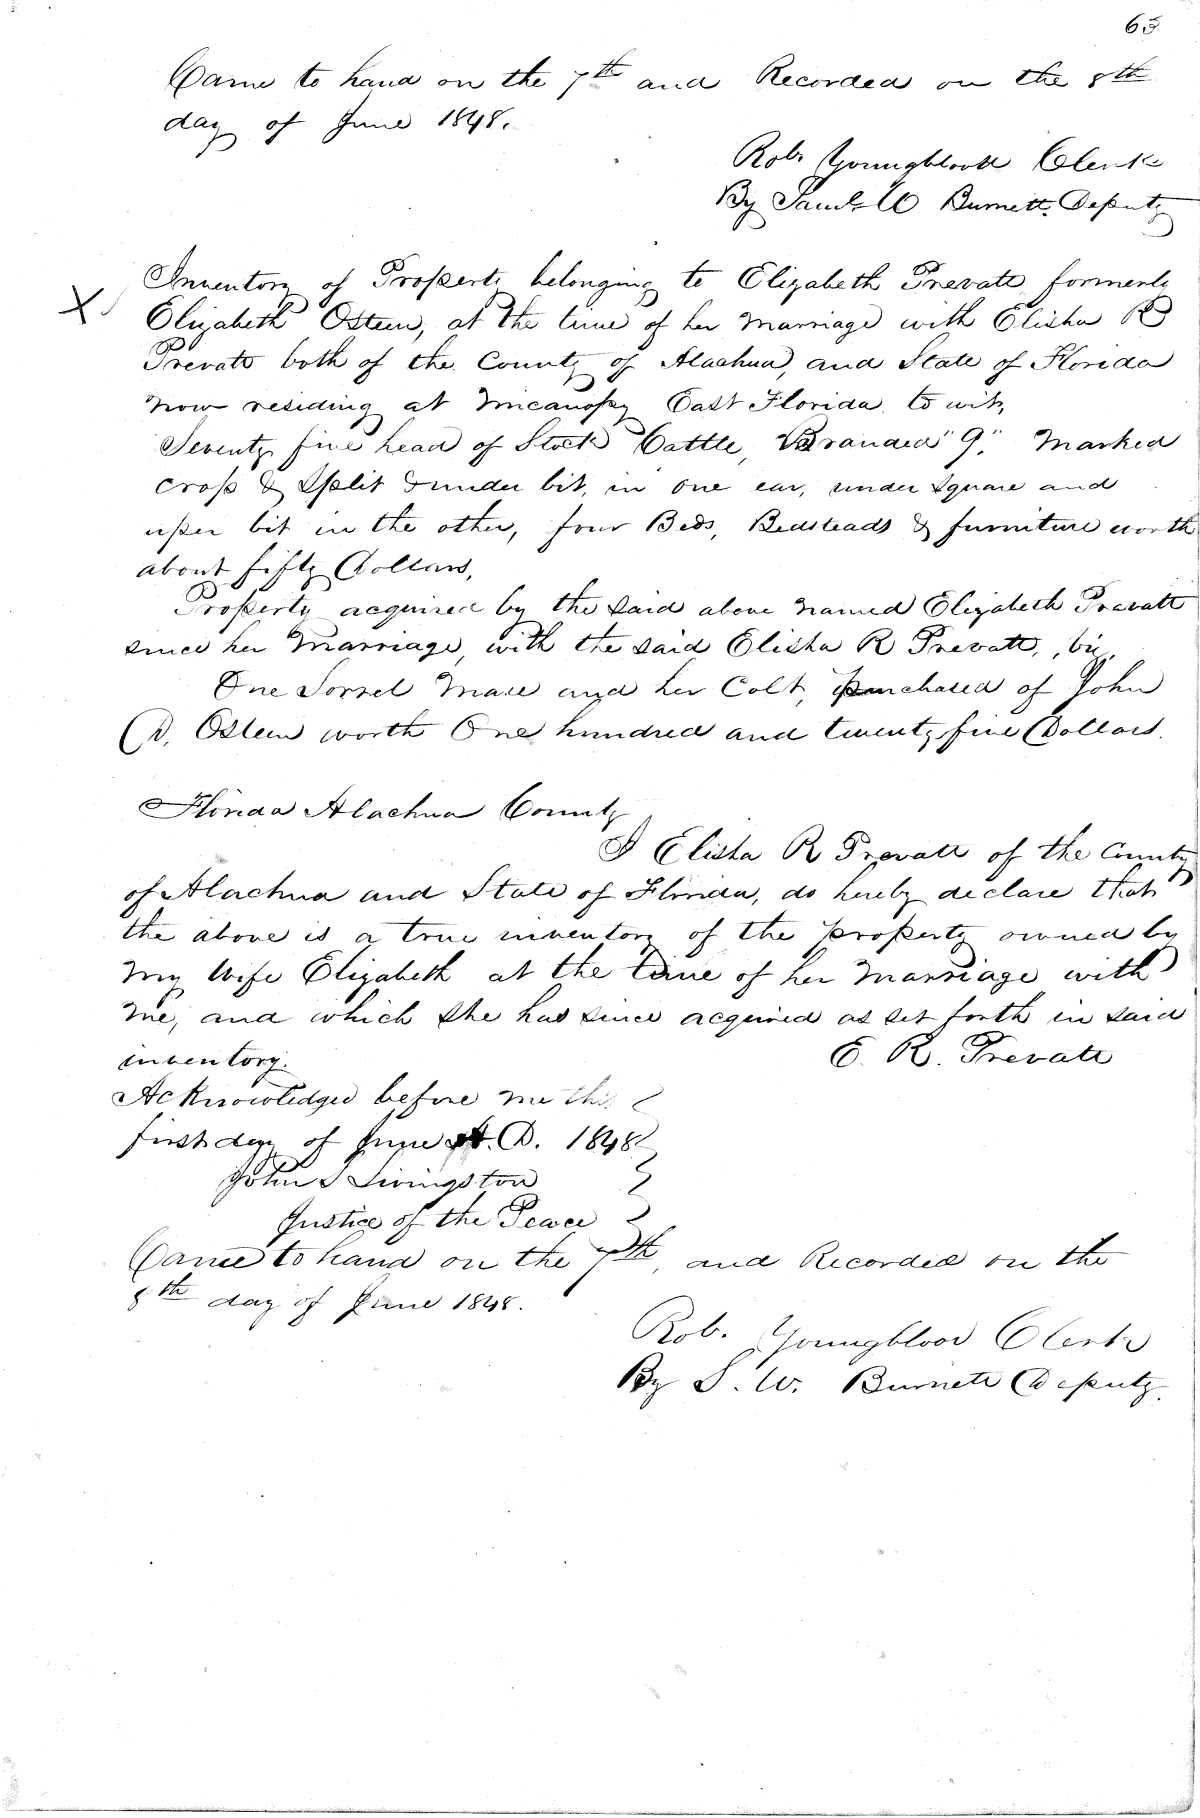 65
Came to hand on the 7th and Recorded on the 8th
day of June 1848.
Rob. Youngblood Clerk
By Saml. W Burnett. Deputy
X Inventory of Property belonging to Elizabeth Prevatt formerly
Elizabeth Osteen, at the time of her Marriage with Elisha R
Prevatt both of the County of Alachua, and State of Florida
now residing at Micanopy East Florida to wit,
Seventy five head of Stock Cattle, Branded "9". Marked
crop & split & under bit, in one ear, under square and
upper bit in the other, four Beds, Bedsteads & furniture worth
about fifty Dollars,
Property acquired by the said above named Elizabeth Prevatt
since her Marriage, with the said Elisha R Prevatt, viz,
One Sorrel Mare and her Colt, purchased of John
D. Osteen worth One hundred and twenty five Dollars.
Florida Alachua County
I Elisha R Prevatt of the County
of Alachua and State of Florida, do hereby declare that
the above is a true inventory of the property owned by
My Wife Elizabeth at the time of her Marriage with
me, and which she has since acquired as set forth in said
inventory. E. R. Prevatt
Acknowledged before me this
first day of June A. D. 1848
John S Livingston
Justice of the Peace
Came to hand on the 7th, and Recorded on the
8th day of June 1848.
Rob. Youngblood Clerk
By S. W. Burnett Deputy.